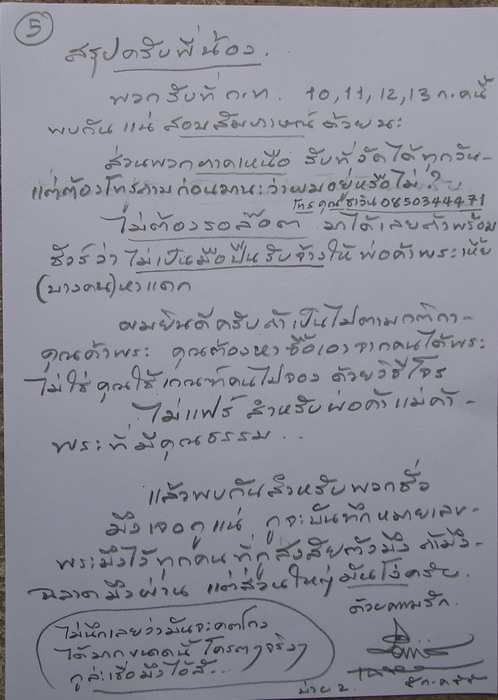 5
สรุปครับพี่น้อง.
พวกรับที่ ก.ท. 10,11,12,13 ก.ค.นี้
พบกันแน่ สอบสัมภาษณ์ด้วยนะ
ส่วนพวกภาคเหนือ รับที่วัดได้ทุกวัน-
แต่ต้องโทรถามก่อนมานะว่าผมอยู่หรือไม่?
โทร คุณชาริน 0850344471
ไม่ต้องรอล๊อต มาได้เลยถ้าพร้อม
ชัวร์ว่า ไม่เป็นมือปืนรับจ้างให้ พ่อค้าพระเหี้ย
(บางคน) หาแดก
ผมยินดีครับถ้าเป็นไปตามกติกา-
คุณค้าพระ คุณต้องหาซื้อเอาจากคนได้พระ
ไม่ใช่ คุณใช้เกณฑ์คนไปจอง ด้วยวิธีโจร
ไม่แฟร์ สำหรับพ่อค้าแม่ค้า-
พระที่มีคุณธรรม...
แล้วพบกันสำหรับพวกชั่ว
มึงเจอกูแน่ กูจะบันทึกหมายเลข-
พระมึงไว้ทุกคน ที่กูสงสัยตัวมึง ถ้ามึง-
ฉลาดมึงผ่าน แต่ส่วนใหญ่มันโง่ครับ.
ด้วยความรัก.
ไม่นึกเลยว่ามันจะคดโกง
ได้มากขนาดนี้ โคตรๆจริงๆ
กูล่ะเชื่อมึงไอ้สั...
บ่าย 2.